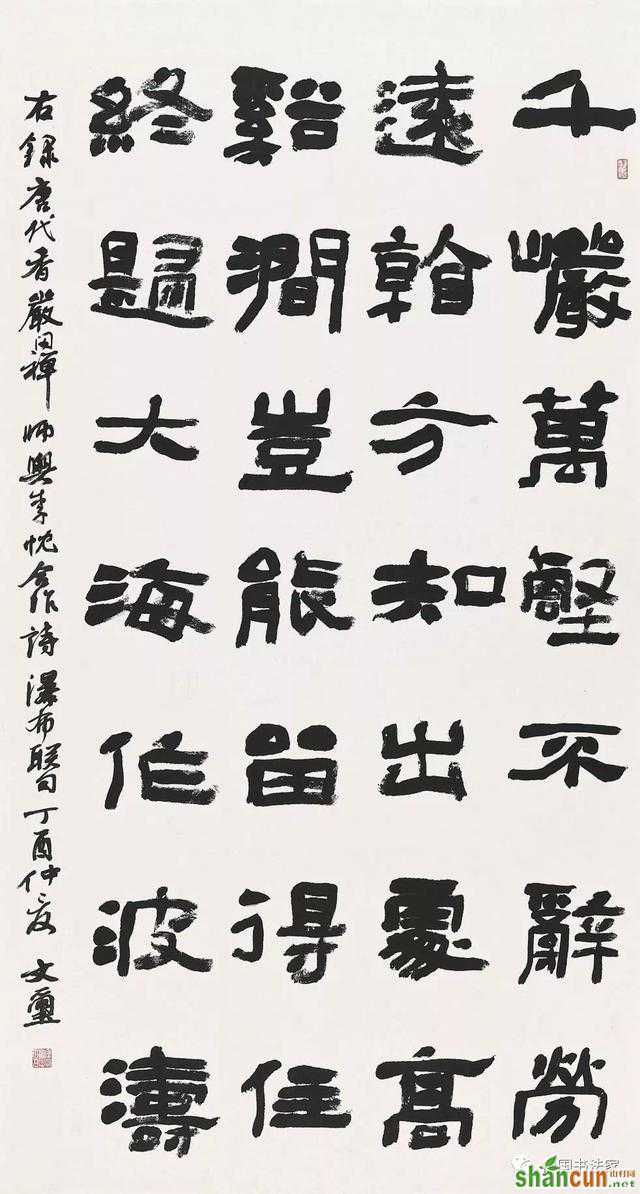 千巖萬壑不辭勞
遠看方知出處高
谿澗豈能留得住
終歸大海作波濤
右録唐代香嚴閑禪師與李忱合作詩瀑布聯句丁酉仲夏文
国书法家
shancun.net